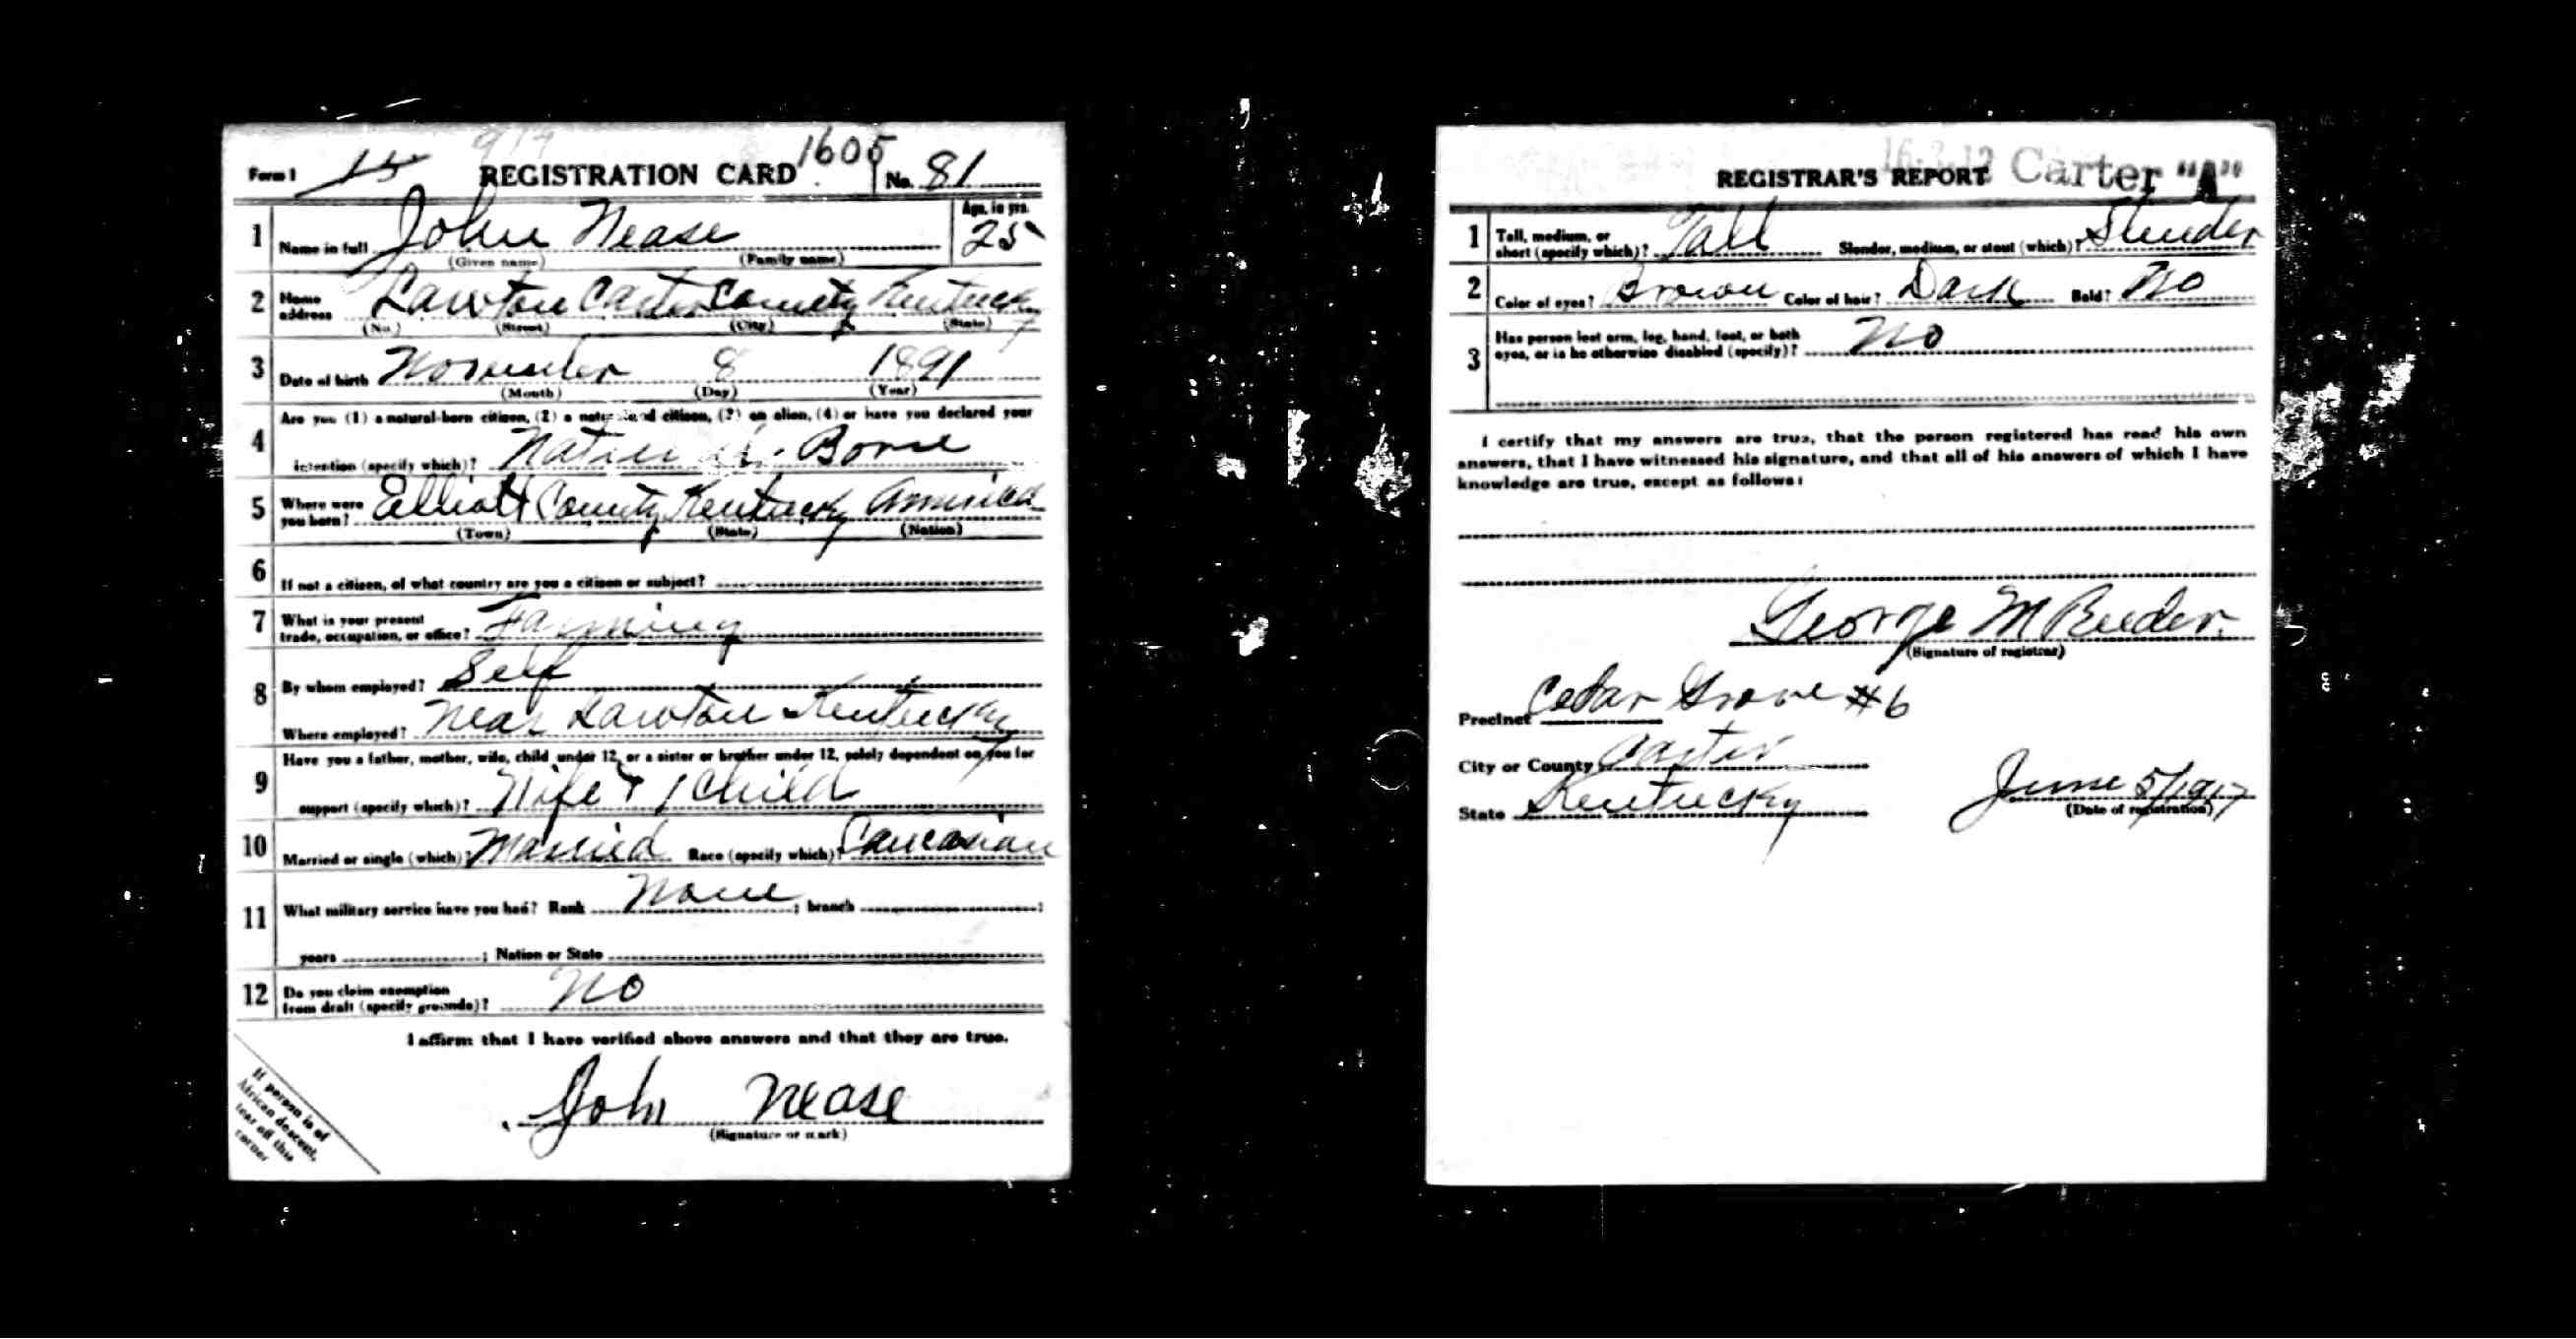 Form 1 15 REGISTRATION CARD 1605 No. 81
1 Name in full John Nease Age, in yrs. 25
(Given name) (Family name)
2 Home address Lawton Carter County Kentucky
(No.) (Street) (City) (State)
3 Date of birth November 8 1891
(Month) (Day) (Year)
Are you (1) a natural-born citizen, (2) a naturalized citizen, (3) an alien, (4) or have you declared your
4 intention (specify which)? Born
5 Where were you born? Elliott County Kentucky America
(Town) (State) (Nation)
6 If not a citizen, of what country are you a citizen or subject?
7 What is your present
trade, occupation, or office? Farming
8 By whom employed? Self
Where employed? Near Lawton Kentucky
Have you a father, mother, wife, child under 12, or a sister or brother under 12, solely dependent on you for
9 support (specify which)? Wife & 1 Child
10 Married or single (which)? Married Race (specify which)? Caucasian
11 What military service have you had? Rank None ; branch ;
years ; Nation or State
12 Do you claim exemption
from draft (specify grounds)? No
I affirm that I have verified above answers and that they are true.
John Nease
(Signature or mark)
If person is of
African descent,
tear off this
corner
REGISTRAR'S REPORT Carter "A"
1 Tall, medium, or
short (specify which)? Tall Slender, medium, or stout (which)? Slender
2 Color of eyes? Brown Color of hair? Dark Bald? No
3 Has person lost arm, leg, hand, foot, or both
eyes, or is he otherwise disabled (specify)? No
I certify that my answers are true, that the person registered has read his own
answers, that I have witnessed his signature, and that all of his answers of which I have
knowledge are true, except as follows:
George M
(Signature of registrar)
Precinct Cedar Grove #6
City or County Carter
State Kentucky June 5/1917
(Date of registration)